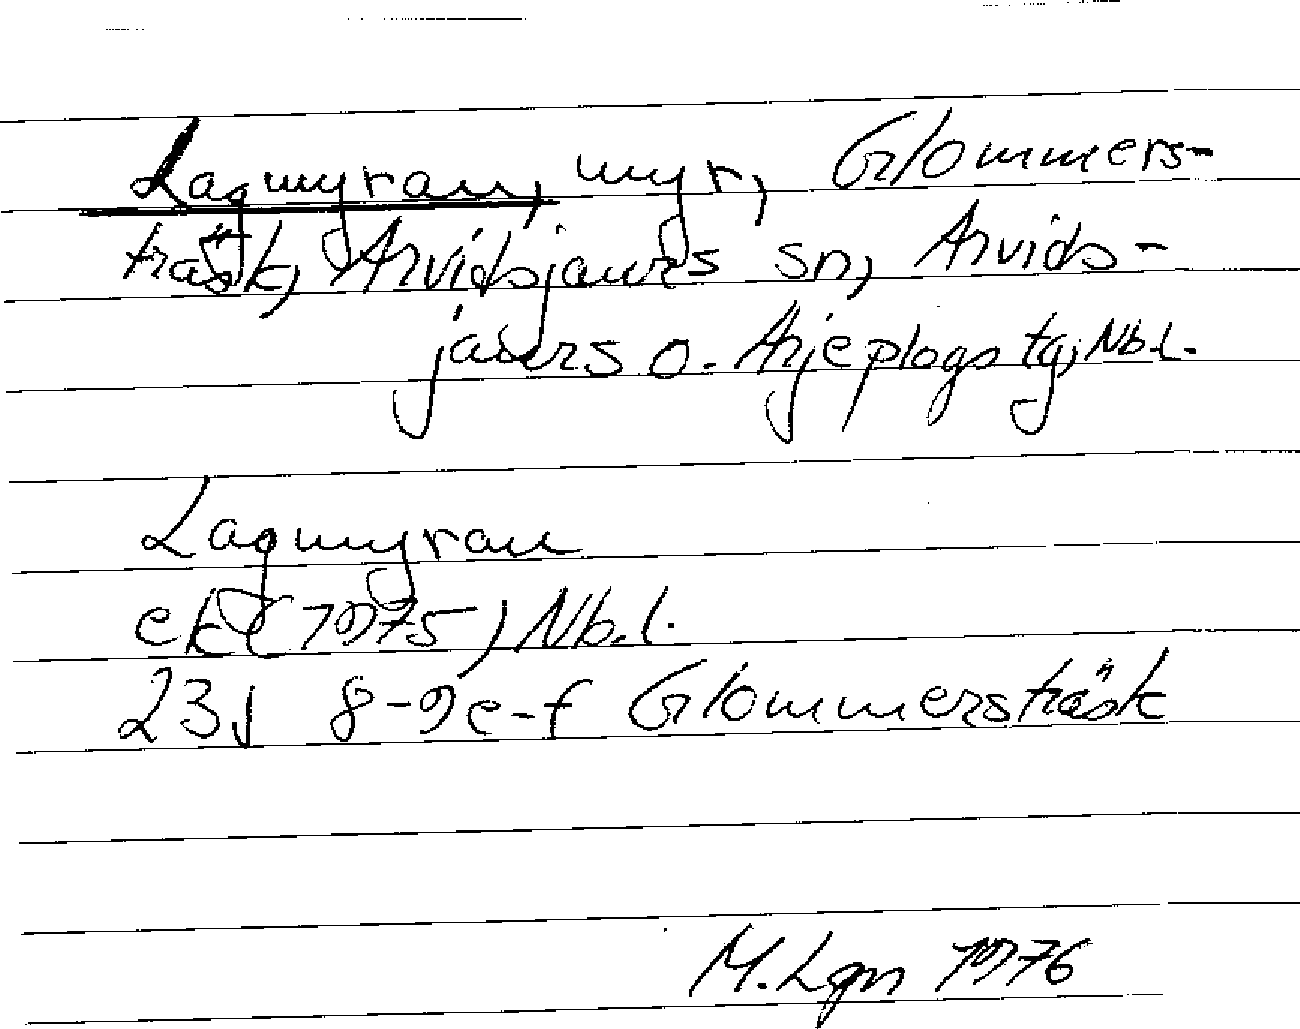 Lagmyran, myr, Glommers-
träsk, Arvidsjaurs sn, Arvids-
jaurs o. Arjeplogs tg, Nb.l.
Lagmyran
ek (1975) Nb.l.
23J 8-9e-f Glommersträsk
M.Lgn 1976